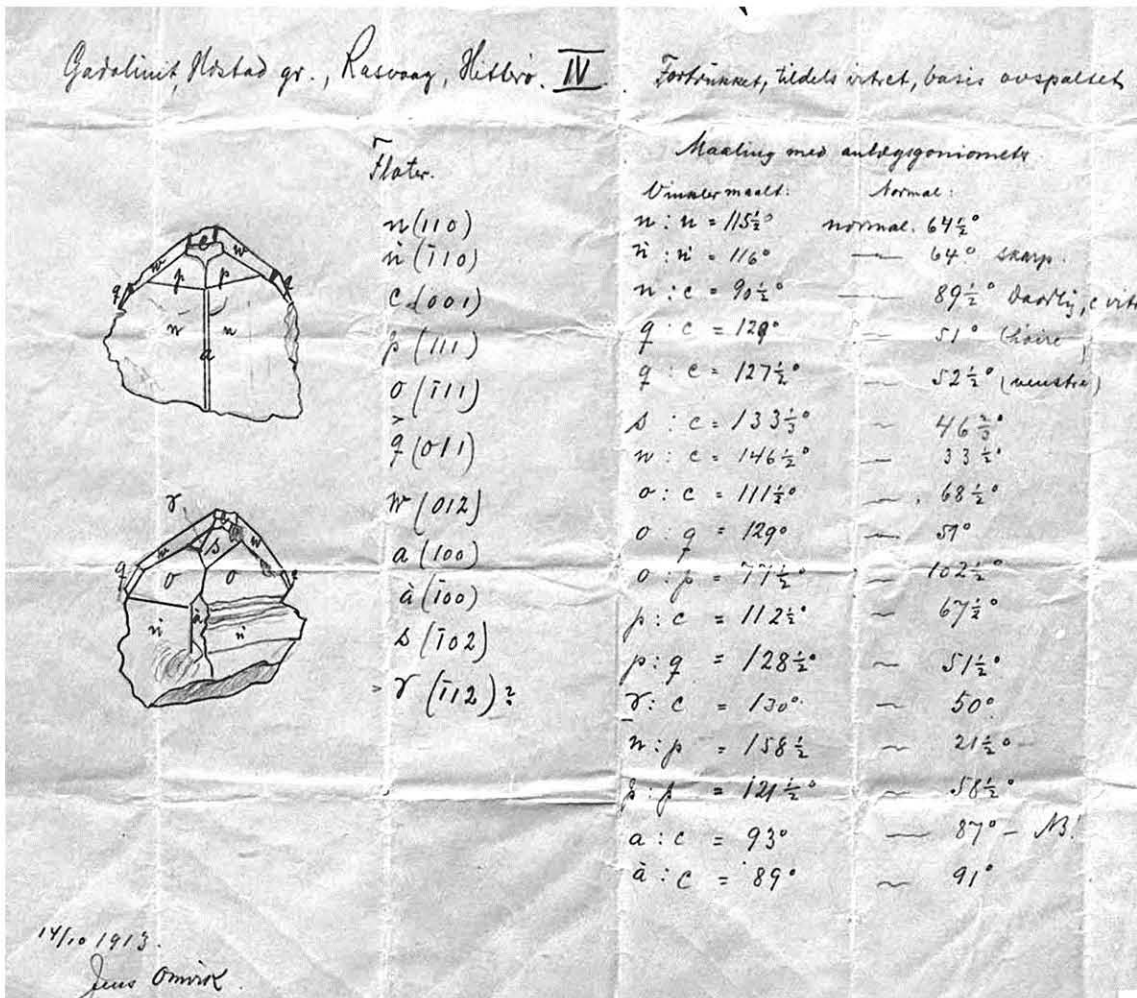 Gadolinit, Hostad gr., Rasvaag, Hitterö. IV. Fortrukket, tildels vitret, basis avspaltet
Flater.
n (110)
ṅ (1̄10)
c (001)
p (111)
o (1̄11)
q (011)
w (012)
a (100)
à (1̄00)
s (1̄02)
γ (1̄12)?
Maaling med anlægsgoniometer
Vinkler maalt: Normal:
n : n = 115½° normal. 64½°
ṅ : ṅ = 116° — 64° skarp.
n : c = 90½° — 89½° daarlig, c vitr
q : c = 129° — 51° (høire)
q : c = 127½° — 52½° (venstre)
s : c = 133⅓° ~ 46⅔°
w : c = 146½° — 33½°
o : c = 111½° ~ 68½°
o : q = 129° ~ 51°
o : p = 77½° ~ 102½°
p : c = 112½° ~ 67½°
p : q = 128½° ~ 51½°
γ : c = 130° ~ 50°
n : p = 158½ ~ 21½°
p : p = 121½° ~ 58½°
a : c = 93° — 87° – NB!
à : c = 89° ~ 91°
c
w w
p p
q q
n n
a
γ
w s w
q o o
ṅ à ṅ
14/10 1913.
Jens Omvik.